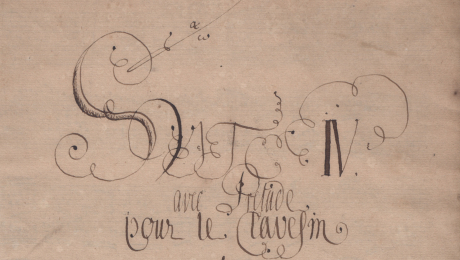 SUITE IV.
avec Prelude
pour le Clavesin